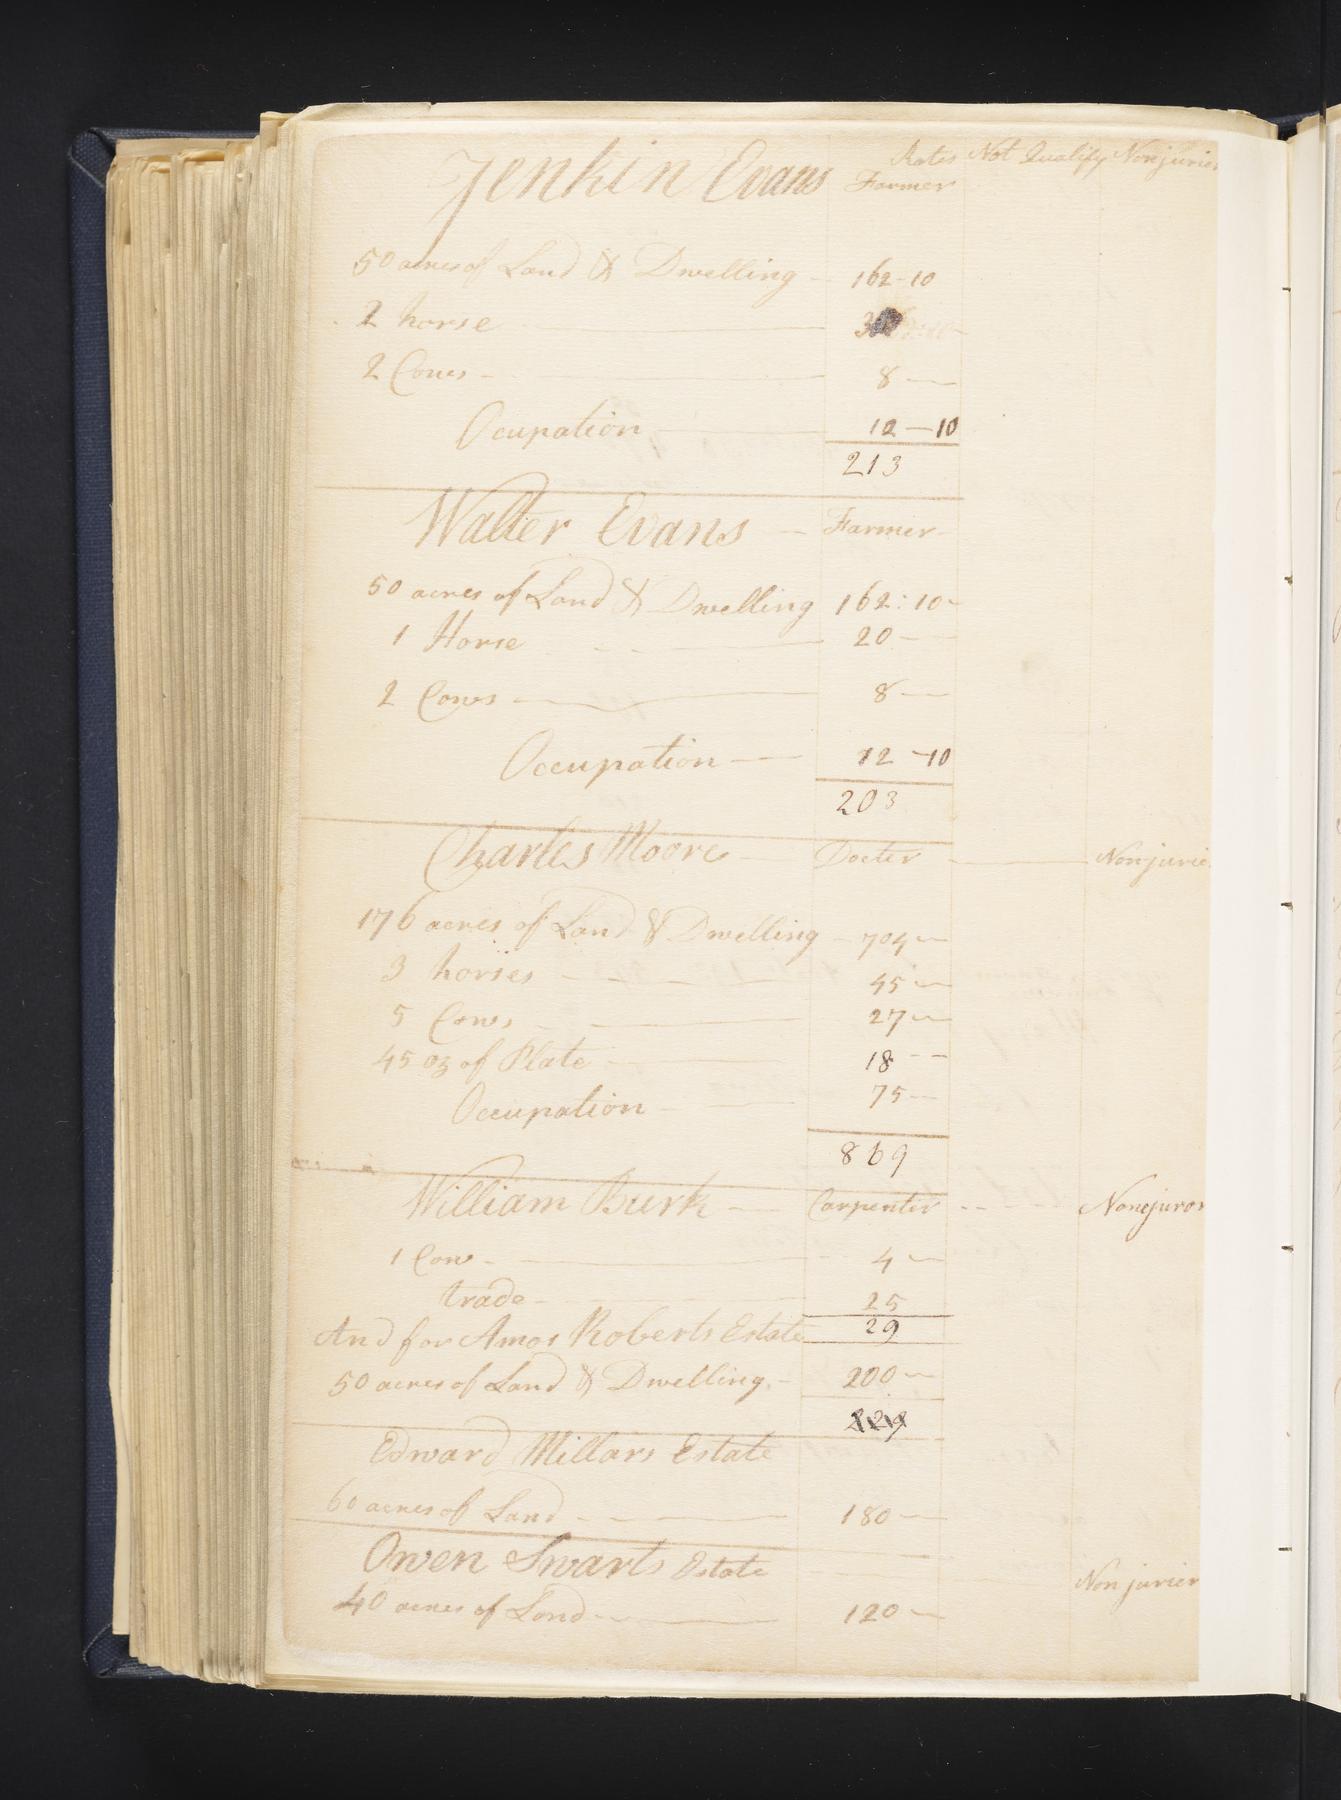 Rates Not Qualify Nonjurie
Jenkin Evans Farmer
50 acres of Land & Dwelling - 162-10
2 horse
2 Cows - 8 —
Ocupation 12 — 10
213
Walter Evans — Farmer
50 acres of Land & Dwelling 162:10
1 Horse 20 —
2 Cows — 8 —
Occupation — 12 — 10
203
Charles Moore — Docter — Nonjurie
176 acres of Land & Dwelling - 704 —
3 horses — 45 —
5 Cows 27 —
45 oz of Plate 18 —
Occupation 75 —
869
William Burk — Carpenter - - Nonejuror
1 Cow - 4 —
trade - 25
And for Amos Roberts Estate 29
50 acres of Land & Dwelling - 200 —
229
Edward Millars Estate
60 acres of Land - - 180 —
Owen Swarts Estate Non jurier
40 acres of Land - - 120 —